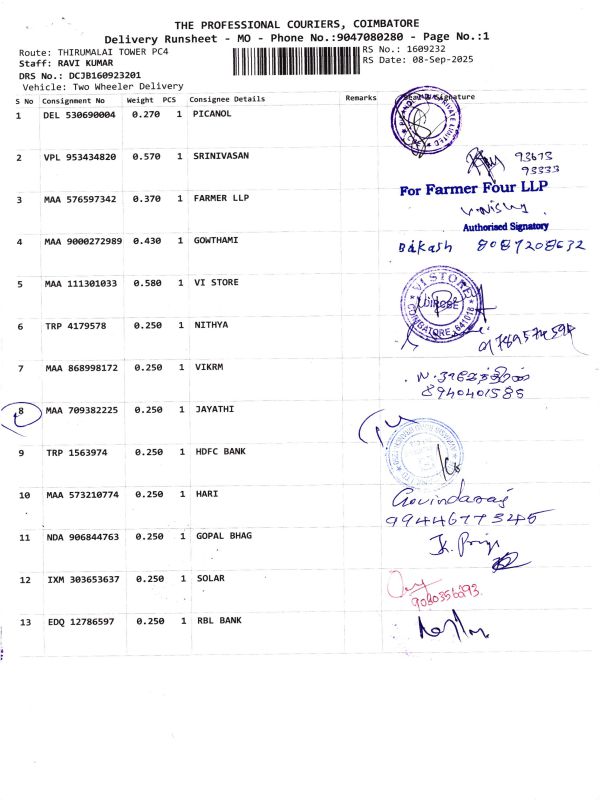 THE PROFESSIONAL COURIERS, COIMBATORE
Delivery Runsheet - MO - Phone No.:9047080280 - Page No.:1
Route: THIRUMALAI TOWER PC4
RS No.: 1609232
Staff: RAVI KUMAR
RS Date: 08-Sep-2025
DRS No.: DCJB160923201
Vehicle: Two Wheeler Delivery
S No Consignment No Weight PCS Consignee Details Remarks Signature
1 DEL 530690004 0.270 1 PICANOL
2 VPL 953434820 0.570 1 SRINIVASAN
93673
93333
3 MAA 576597342 0.370 1 FARMER LLP
For Farmer Four LLP
Authorised Signatory
4 MAA 9000272989 0.430 1 GOWTHAMI
5 MAA 111301033 0.580 1 VI STORE
VI STORE
COIMBATORE 641018
6 TRP 4179578 0.250 1 NITHYA
7 MAA 868998172 0.250 1 VIKRM
8940401586
8 MAA 709382225 0.250 1 JAYATHI
9 TRP 1563974 0.250 1 HDFC BANK
10 MAA 573210774 0.250 1 HARI
Govindaraj
9944677345
11 NDA 906844763 0.250 1 GOPAL BHAG
12 IXM 303653637 0.250 1 SOLAR
9080356293
13 EDQ 12786597 0.250 1 RBL BANK